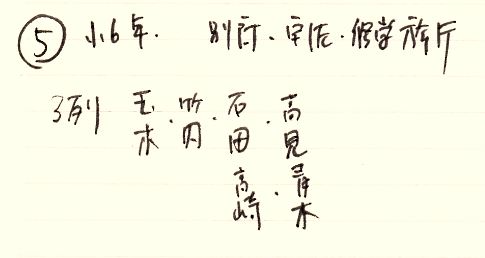 ⑤ 小6年. 別府・宇佐・修学旅行
3列 玉木・竹内・石田・高見
高崎・青木